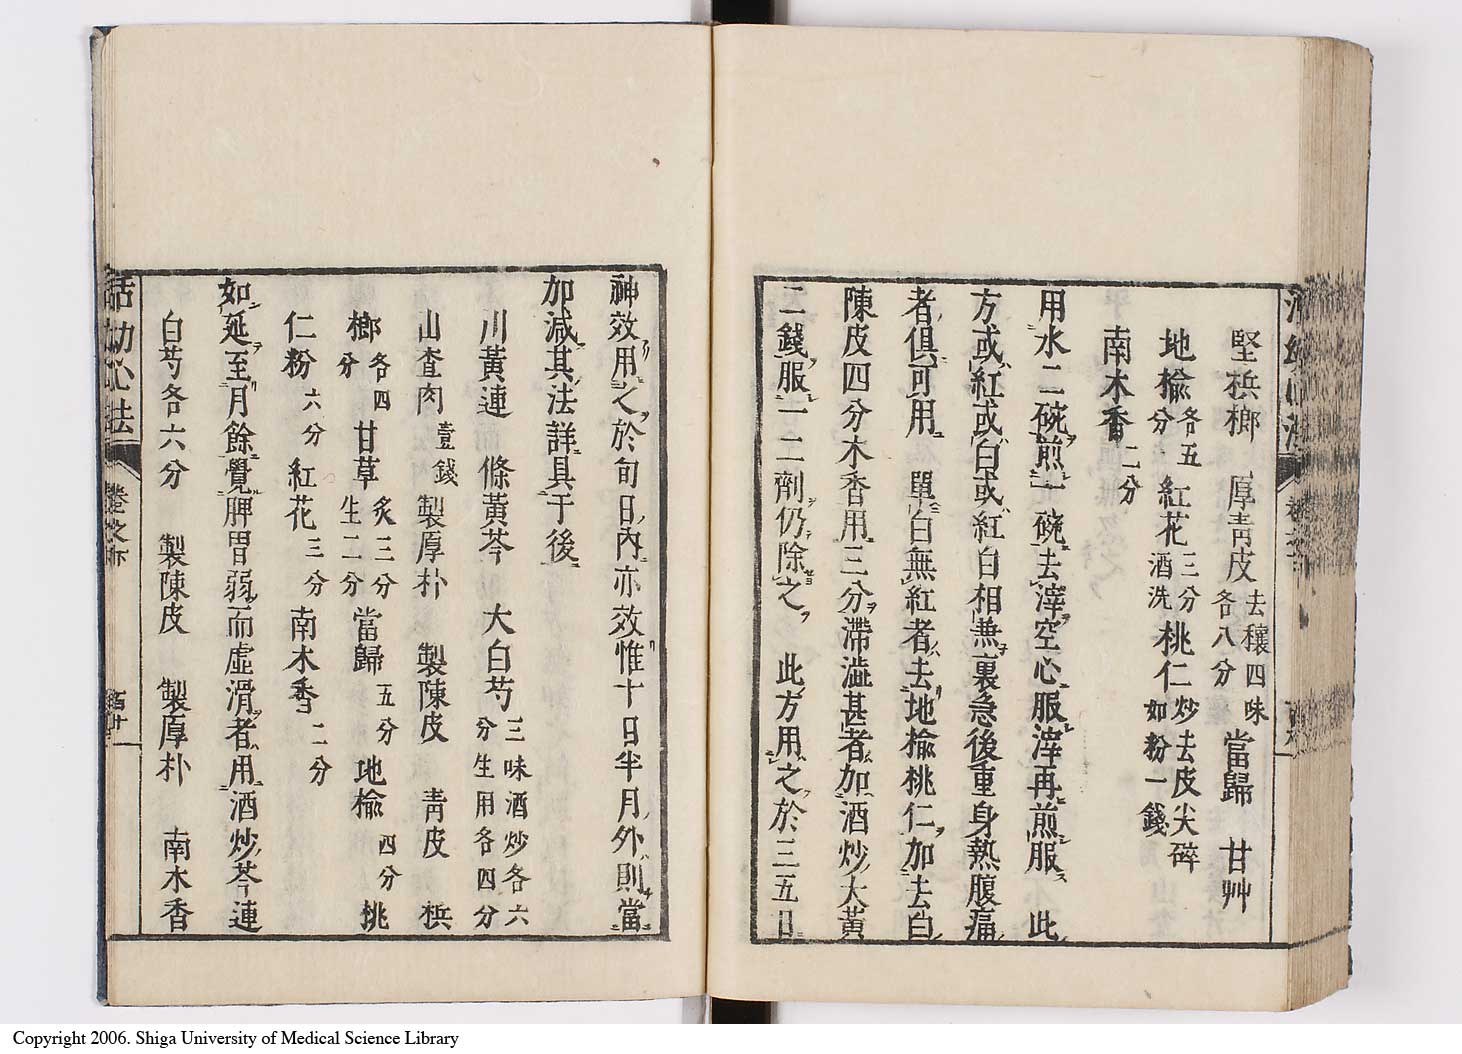 堅梹榔　厚青皮去穰四味各八分當歸　甘艸
地楡各五分紅花三分酒洗桃仁炒去皮尖碎如粉一錢
南木香二分
用水二碗煎一碗去滓空心服滓再煎服　此
方或紅或白或紅白相兼裏急後重身熱腹痛
者俱可用　單白無紅者去地楡桃仁加去白
陳皮四分木香用三分滯澁甚者加酒炒大黃
二錢服一二劑仍除之　此方用之於三五日
神效用之於旬日內亦效惟十日半月外則當
加減其法詳具于後
川黃連　條黃芩　大白芍三味酒炒各六分生用各四分
山査肉壹錢　製厚朴　製陳皮　青皮　梹
榔各四分　甘草炙三分生二分　當歸五分　地楡四分　桃
仁粉六分　紅花三分　南木香二分
如延至月餘覺脾胃弱而虛滑者用酒炒芩連
白芍各六分　製陳皮　製厚朴　南木香
活幼心法